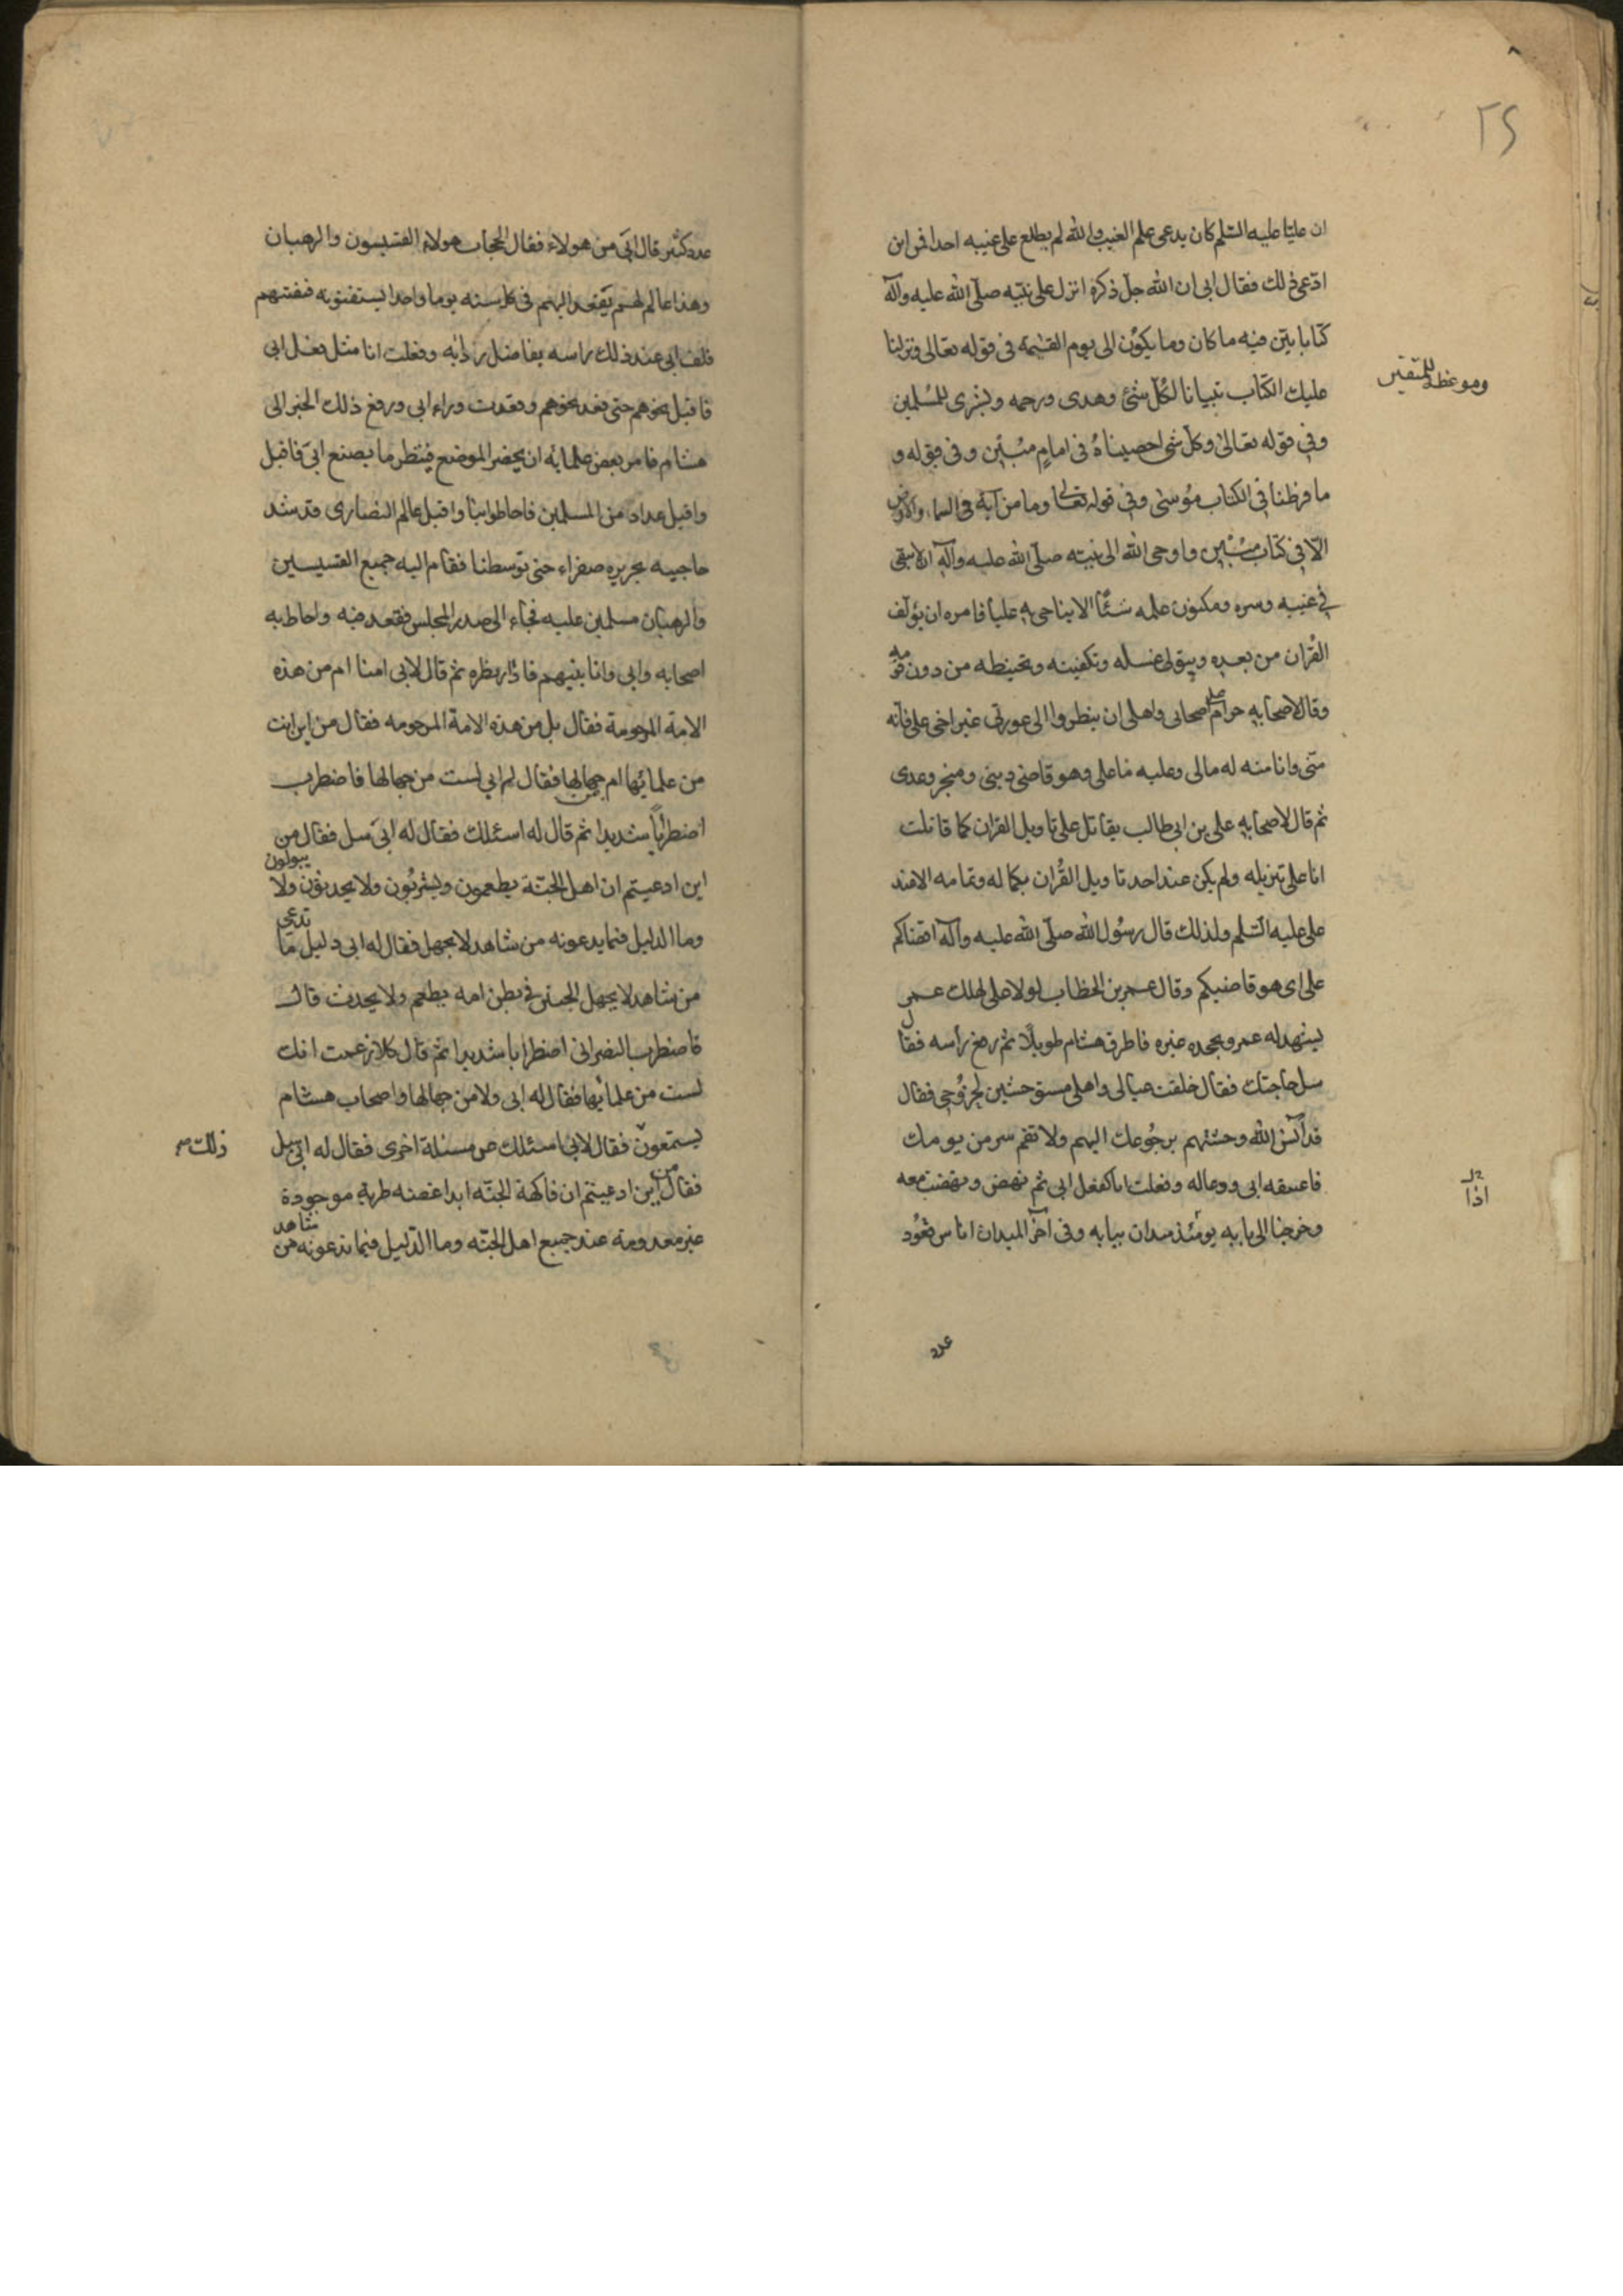 ٢٤
ان عليا عليه السلم كان يدعى علم الغيب والله لم يطلع على غيبه احدا فمن اين
ادّعى ذلك فقال ابى ان الله جلّ ذكره انزل على نبيّه صلّى الله عليه وآله
كتابا بيّن فيه ما كان وما يكون الى يوم القيمة فى قوله تعالى ونزلنا
عليك الكتاب تبيانا لكُلّ شئ وهدى ورحمه وبشرى للمُسلمين
وموعظة للمتقين
وفى قوله تعالى وكلّ شئ احصيناهُ فى امامٍ مُبين وفى قوله و
ما فرطنا فى الكتاب من شئ وفى قوله تعالى وما من آية فى السماء والارض
الّا فى كتاب مُبين واوحى الله الى نبيّه صلّى الله عليه وآله ان لا يبقى
فى غيبه وسره ومكنون علمه شئًا الا يناجى به عليا فامره ان يؤلف
القُران من بعده ويتولى غسله وتكفينه وتحنيطه من دون قومه
وقال لاصحابه حرام على اصحابى واهلى ان ينظروا الى عورتى غير اخى على فانّه
منّى وانا منه له مالى وعليه ما على وهو قاضى دينى ومنجز وعدى
ثم قال لاصحابه على بن ابى طالب يقاتل على تاويل القران كما قاتلت
انا على تنزيله ولم يكن عند احد تاويل القُران بكماله وتمامه الا عند
على عليه السّلم ولذلك قال رسُول الله صلّى الله عليه وآله اقضاكم
على اى هو قاضيكم وقال عمر بن الخطاب لولا على لهلك عمر
يشهد له عمر ويجحده غيره فاطرق هشام طويلًا ثم رفع رأسه فقال
سل حاجتك فقال خلفت عيالى واهلى مستوحشين لخرُوجى فقال
قد آنس الله وحشتهم برجُوعك اليهم ولا تقم سر من يومك
فاعتنقه ابى ودعا له وفعلت انا كفعل ابى ثم نهض ونهضت معه
وخرجنا الى بابه
اذا
ميدان ببابه وفى آخر الميدان اناس قعُود
عدد
عدد كثير قال ابى من هولاء فقال الحجاب هولاء القسيسون والرهبان
وهذا عالم لهم يقعد اليهم فى كل سنه يوما واحدا يستفتونه فيفتيهم
فلف ابى عند ذلك راسه بفاضل ردائه وفعلت انا مثل فعل ابى
فاقبل نحوهم حتى قعد نحوهم وقعدت وراء ابى ورفع ذلك الخبر الى
هشام فامر بعض غلمانه ان يحضر الموضع فينظر ما يصنع ابى فاقبل
واقبل عداد من المسلمين فاحاطوا بنا واقبل عالم النصارى قد شد
حاجبيه بحريره صفراء حتى توسطنا فقام اليه جميع القسيسين
والرهبان مسلمين عليه فجاء الى صدر المجلس فقعد فيه واحاط به
اصحابه وابى وانا بينهم فادار نظره ثم قال لابى امنا ام من هذه
الامة المرحومة فقال بل من هذه الامة المرحومه فقال من اين انت
من علمائها ام من جهالها فقال له ابى لست من جهالها فاضطرب
اضطراباً شديدا ثم قال له اسئلك فقال له ابى سل فقال من
اين ادعيتم ان اهل الجنّة يطعمون ويشربُون ولا يحدثون ولا يبولون
وما الدليل فيما يدعونه من شاهد لا يجهل فقال له ابى دليل ما ندعى
من شاهد لا يجهل الجنين فى بطن امه يطعم ولا يحدث قال
فاضطرب النصرانى اضطرابا شديدا ثم قال كلا زعمت انك
لست من علمائها فقال له ابى ولا من جهالها واصحاب هشام
يستمعون فقال لابى اسئلك عن مسئلة اخرى فقال له ابى سل
ذلك
فقال من اين ادعيتم ان فاكهة الجنّه ابدا غضه طرية موجودة
غير معدومة عند جميع اهل الجنّه وما الدّليل فيما تدعونه من شاهد